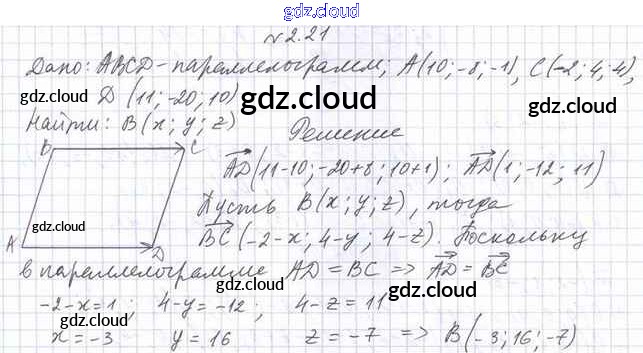 gdz.cloud
№2.21
Дано: ABCD - параллелограмм, A(10; -8; -1), C(-2; 4; 4),
D (11; -20; 10) gdz.cloud
gdz.cloud
Найти: B(x; y; z) Решение
B C
AD(11-10; -20+8; 10+1); AD(1; -12; 11)
Пусть B(x; y; z), тогда
gdz.cloud
BC(-2-x; 4-y; 4-z). Поскольку
A D
в параллелограмме AD = BC => AD = BC
gdz.cloud
-2-x=1; 4-y=-12; 4-z=11
x=-3 y=16 z=-7 => B(-3; 16; -7)
gdz.cloud